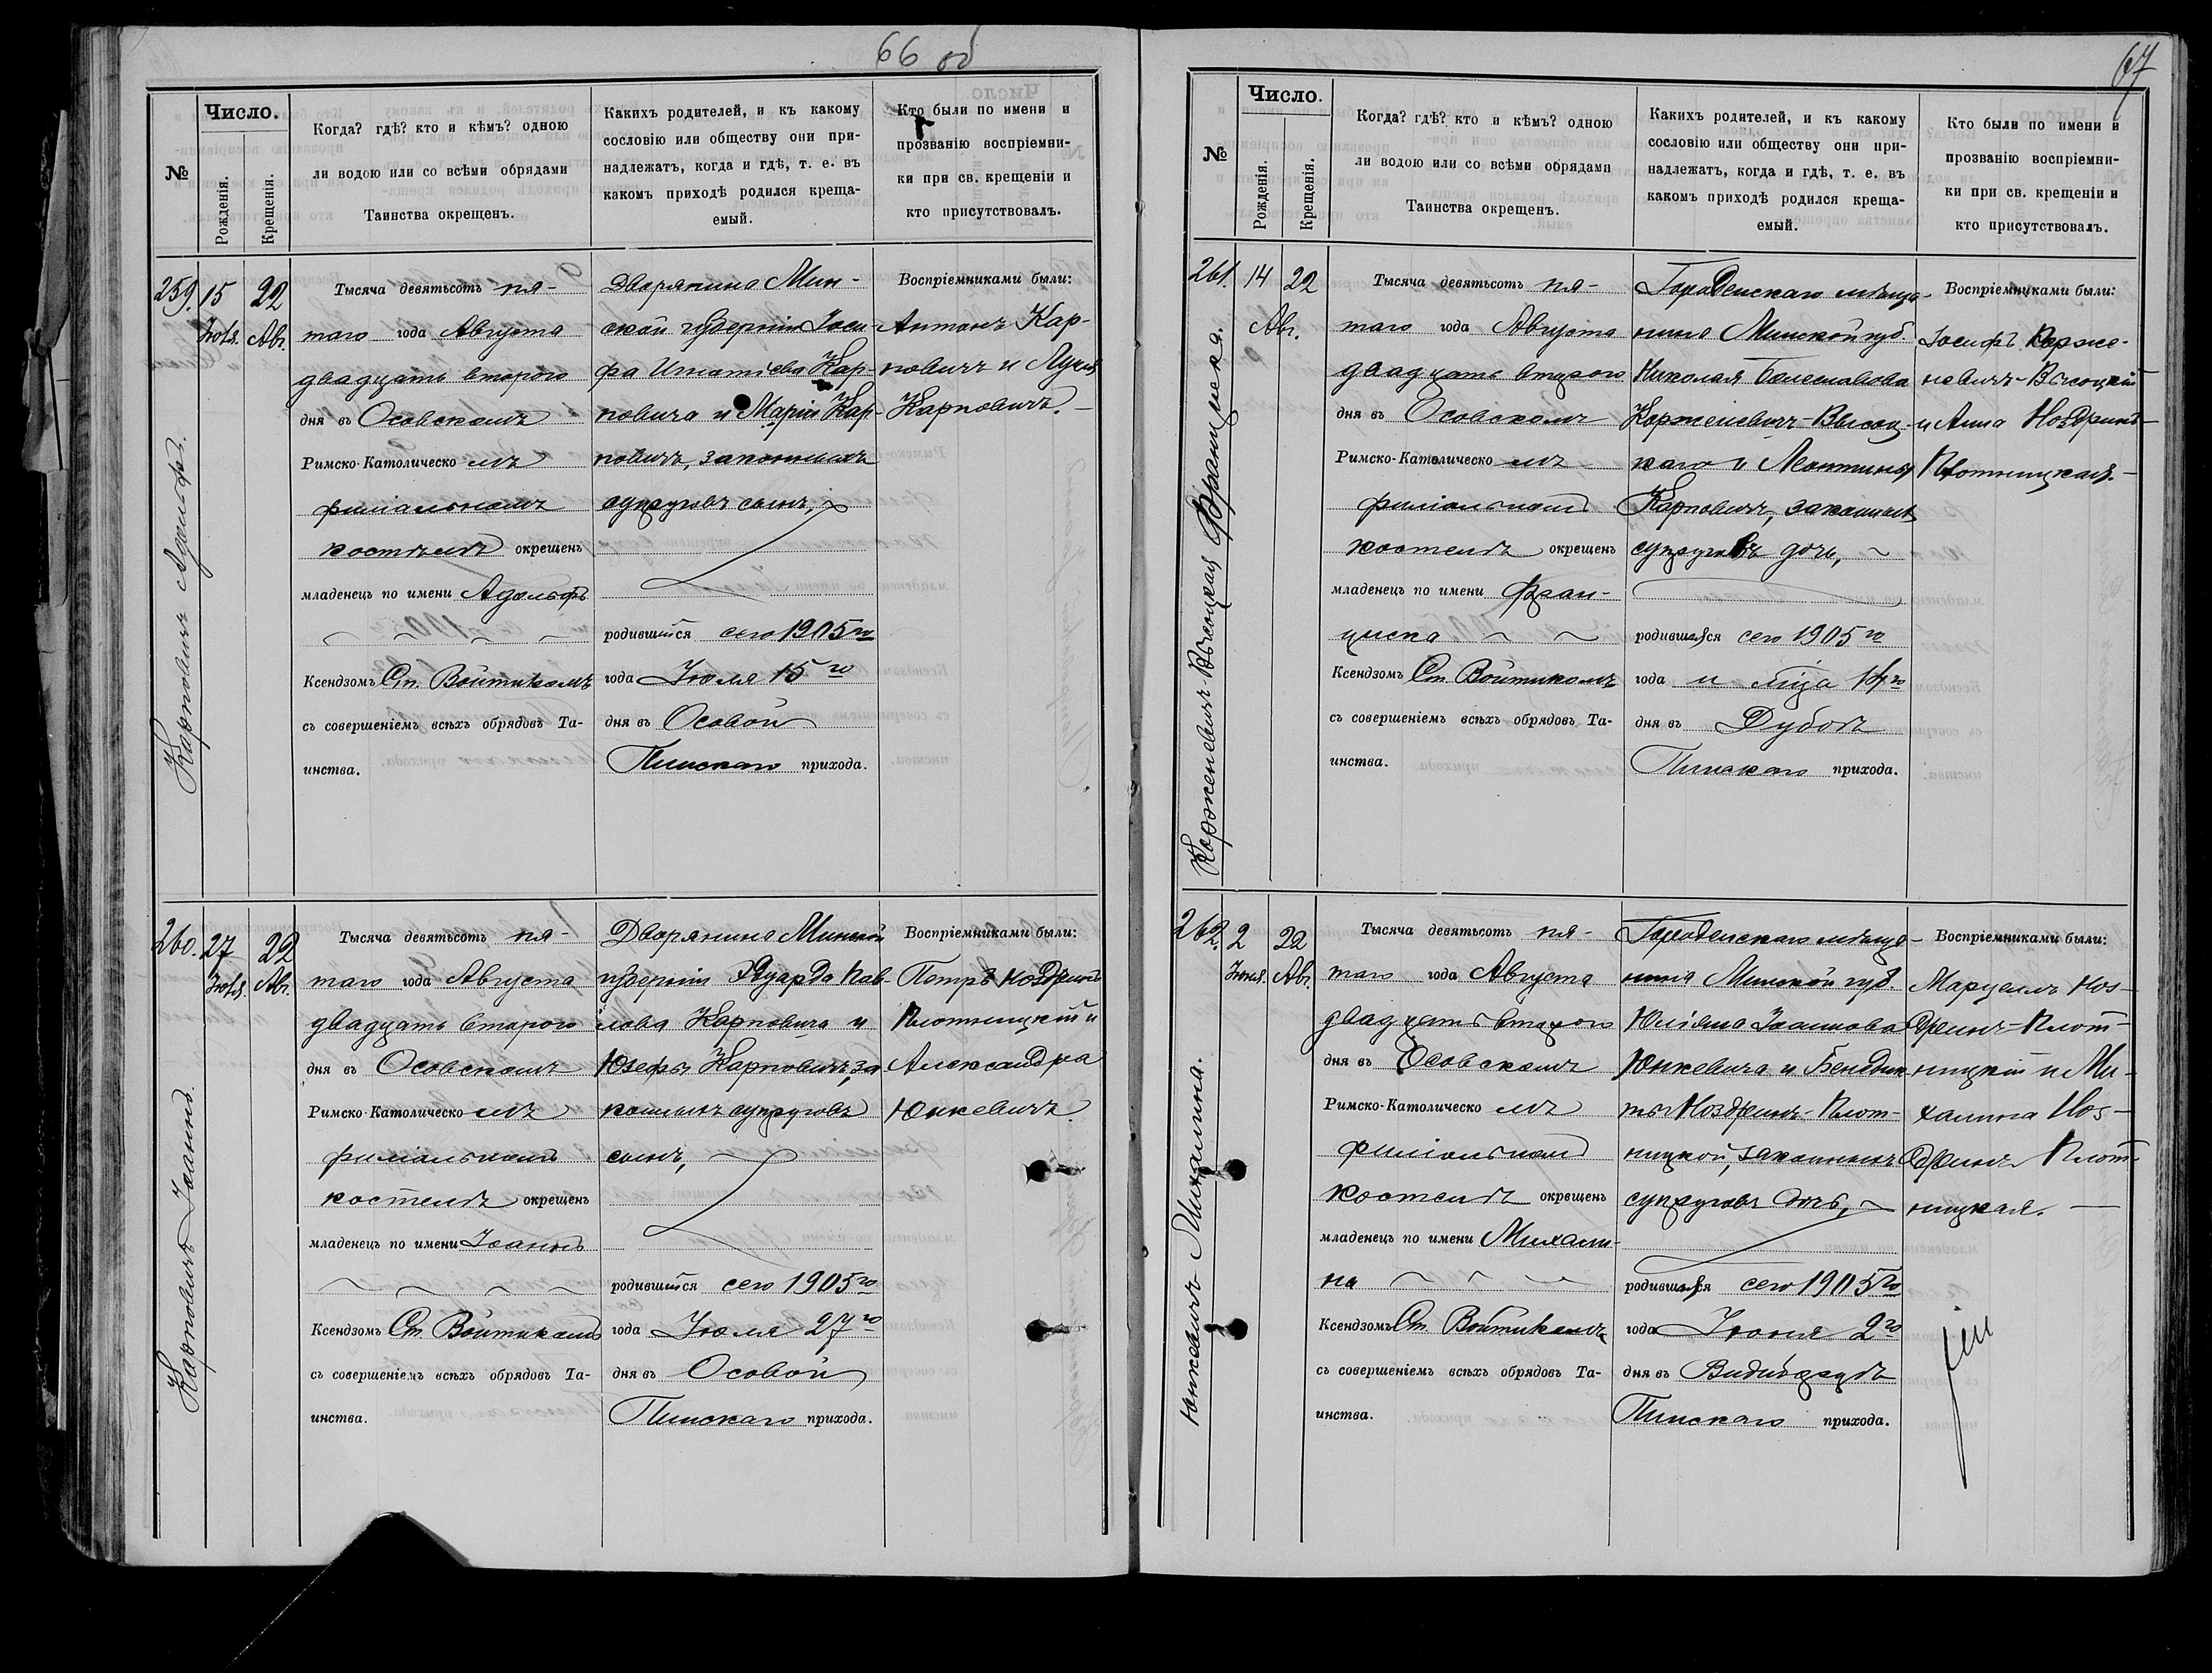 66 об
№
Число.
Рожденія.
Крещенія.
Когда? гдѣ? кто и кѣмъ? одною
ли водою или со всѣми обрядами
Таинства окрещенъ.
Какихъ родителей, и къ какому
сословію или обществу они при-
надлежатъ, когда и гдѣ, т. е. въ
какомъ приходѣ родился креща-
емый.
Кто были по имени и
прозванію воспріемни-
ки при св. крещеніи и
кто присутствовалъ.
259.
15
Іюля.
22
Авг.
Карповичъ Адольфъ.
Тысяча девятьсотъ пя-
таго года Августа
двадцать второго
дня въ Осовскомъ
Римско-Католическомъ
филіальномъ
костелѣ окрещенъ
младенецъ по имени Адольфъ
Ксендзомъ Ст. Войтикомъ
съ совершеніемъ всѣхъ обрядовъ Та-
инства.
Дворянина Мин-
ской губерніи Іоси-
фа Игнатіева Кар-
повича и Маріи Кар-
повичъ, законныхъ
супруговъ сынъ,
родившійся сего 1905 го
года Іюля 15 го
дня въ Осовой
Пинскаго прихода.
Воспріемниками были:
Антонъ Кар-
повичъ и Луція
Карповичъ.
260.
27
Іюля.
22
Авг.
Карповичъ Іоаннъ.
Тысяча девятьсотъ пя-
таго года Августа
двадцать второго
дня въ Осовскомъ
Римско-Католическомъ
филіальномъ
костелѣ окрещенъ
младенецъ по имени Іоаннъ
Ксендзомъ Ст. Войтикомъ
съ совершеніемъ всѣхъ обрядовъ Та-
инства.
Дворянина Минской
губерніи Эдуарда Пав-
лова Карповича и
Юзефы Карповичъ, за
конныхъ супруговъ
сынъ,
родившійся сего 1905 го
года Іюля 27 го
дня въ Осовой
Пинскаго прихода.
Воспріемниками были:
Петръ Ноздринъ
Плотницкій и
Александра
Юнкевичъ.
67
№
Число.
Рожденія.
Крещенія.
Когда? гдѣ? кто и кѣмъ? одною
ли водою или со всѣми обрядами
Таинства окрещенъ.
Какихъ родителей, и къ какому
сословію или обществу они при-
надлежатъ, когда и гдѣ, т. е. въ
какомъ приходѣ родился креща-
емый.
Кто были по имени и
прозванію воспріемни-
ки при св. крещеніи и
кто присутствовалъ.
261.
14
22
Авг.
Корженевичъ-Высоцкая Франциска.
Тысяча девятьсотъ пя-
таго года Августа
двадцать второго
дня въ Осовскомъ
Римско-Католическомъ
филіальномъ
костелѣ окрещенъ
младенецъ по имени Фран-
циска
Ксендзомъ Ст. Войтикомъ
съ совершеніемъ всѣхъ обрядовъ Та-
инства.
Городенскаго мѣща-
нина Минской губ.
Николая Болеславова
Корженевичъ-Высоц-
каго и Леонтины
Карповичъ, законныхъ
супруговъ дочь,
родившаяся сего 1905 го
года и мѣца 14 го
дня въ Дубоѣ
Пинскаго прихода.
Воспріемниками были:
Іосифъ Корже-
невичъ-Высоцкій
и Анна Ноздринъ-
Плотницкая.
262.
2
Іюня.
22
Авг.
Юнкевичъ Михалина.
Тысяча девятьсотъ пя-
таго года Августа
двадцать второго
дня въ Осовскомъ
Римско-Католическомъ
филіальномъ
костелѣ окрещенъ
младенецъ по имени Михали-
на
Ксендзомъ Ст. Войтикомъ
съ совершеніемъ всѣхъ обрядовъ Та-
инства.
Городенскаго мѣща-
нина Минской губ.
Юліана Іоаннова
Юнкевича и Бенедик-
ты Ноздринъ-Плот-
ницкой, законныхъ
супруговъ дочь,
родившаяся сего 1905 го
года Іюня 2 го
дня въ
Пинскаго прихода.
Воспріемниками были:
Марцелъ Ноз-
дринъ-Плот-
ницкій и Ми-
халина Ноз-
дринъ Плот-
ницкая.